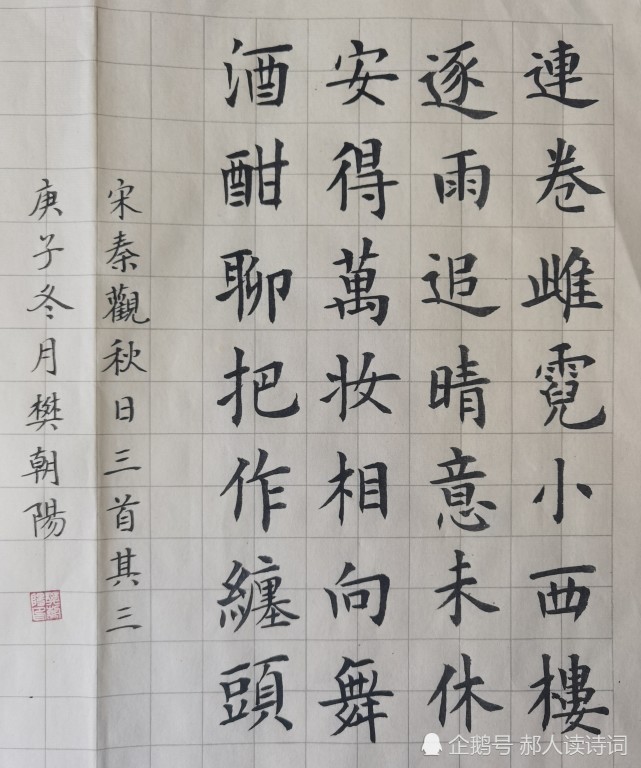 連卷雌霓小西樓
逐雨追晴意未休
安得萬妝相向舞
酒酣聊把作纏頭
宋秦觀秋日三首其三
庚子冬月樊朝陽
企鹅号 郝人读诗词